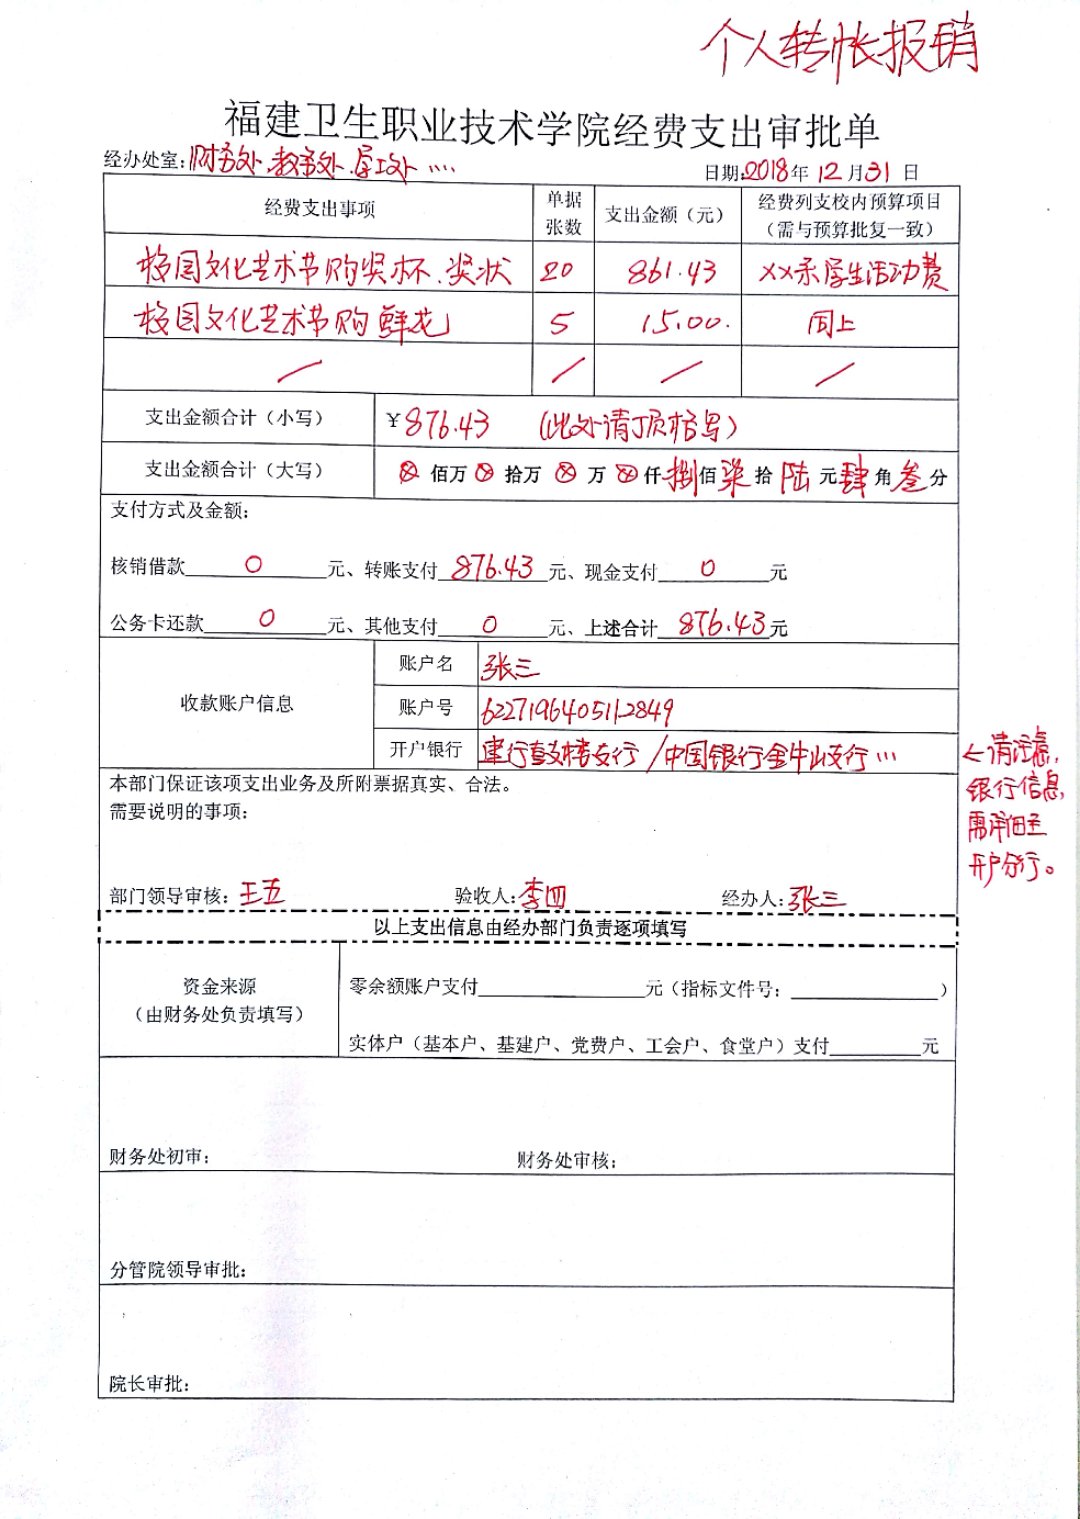 个人转帐报销
福建卫生职业技术学院经费支出审批单
经办处室:财务处、教务处、学工处…… 日期:2018年12月31日
经费支出事项 单据张数 支出金额（元） 经费列支校内预算项目（需与预算批复一致）
校园文化艺术节购奖杯、奖状 20 861.43 XX系学生活动费
校园文化艺术节购鲜花 5 15.00. 同上
/ / / /
支出金额合计（小写） ¥876.43 （此处请顶格写）
支出金额合计（大写） ⊗佰万⊗拾万⊗万⊗仟捌佰柒拾陆元肆角叁分
支付方式及金额:
核销借款0元、转账支付876.43元、现金支付0元
公务卡还款0元、其他支付0元、上述合计876.43元
收款账户信息
账户名 张三
账户号 6227196405112849
开户银行 建行鼓楼支行/中国银行金牛山支行…
←请注意,
银行信息,
需详细至
开户分行。
本部门保证该项支出业务及所附票据真实、合法。
需要说明的事项:
部门领导审核:王五 验收人:李四 经办人:张三
以上支出信息由经办部门负责逐项填写
资金来源
（由财务处负责填写）
零余额账户支付元（指标文件号: ）
实体户（基本户、基建户、党费户、工会户、食堂户）支付元
财务处初审: 财务处审核:
分管院领导审批:
院长审批: